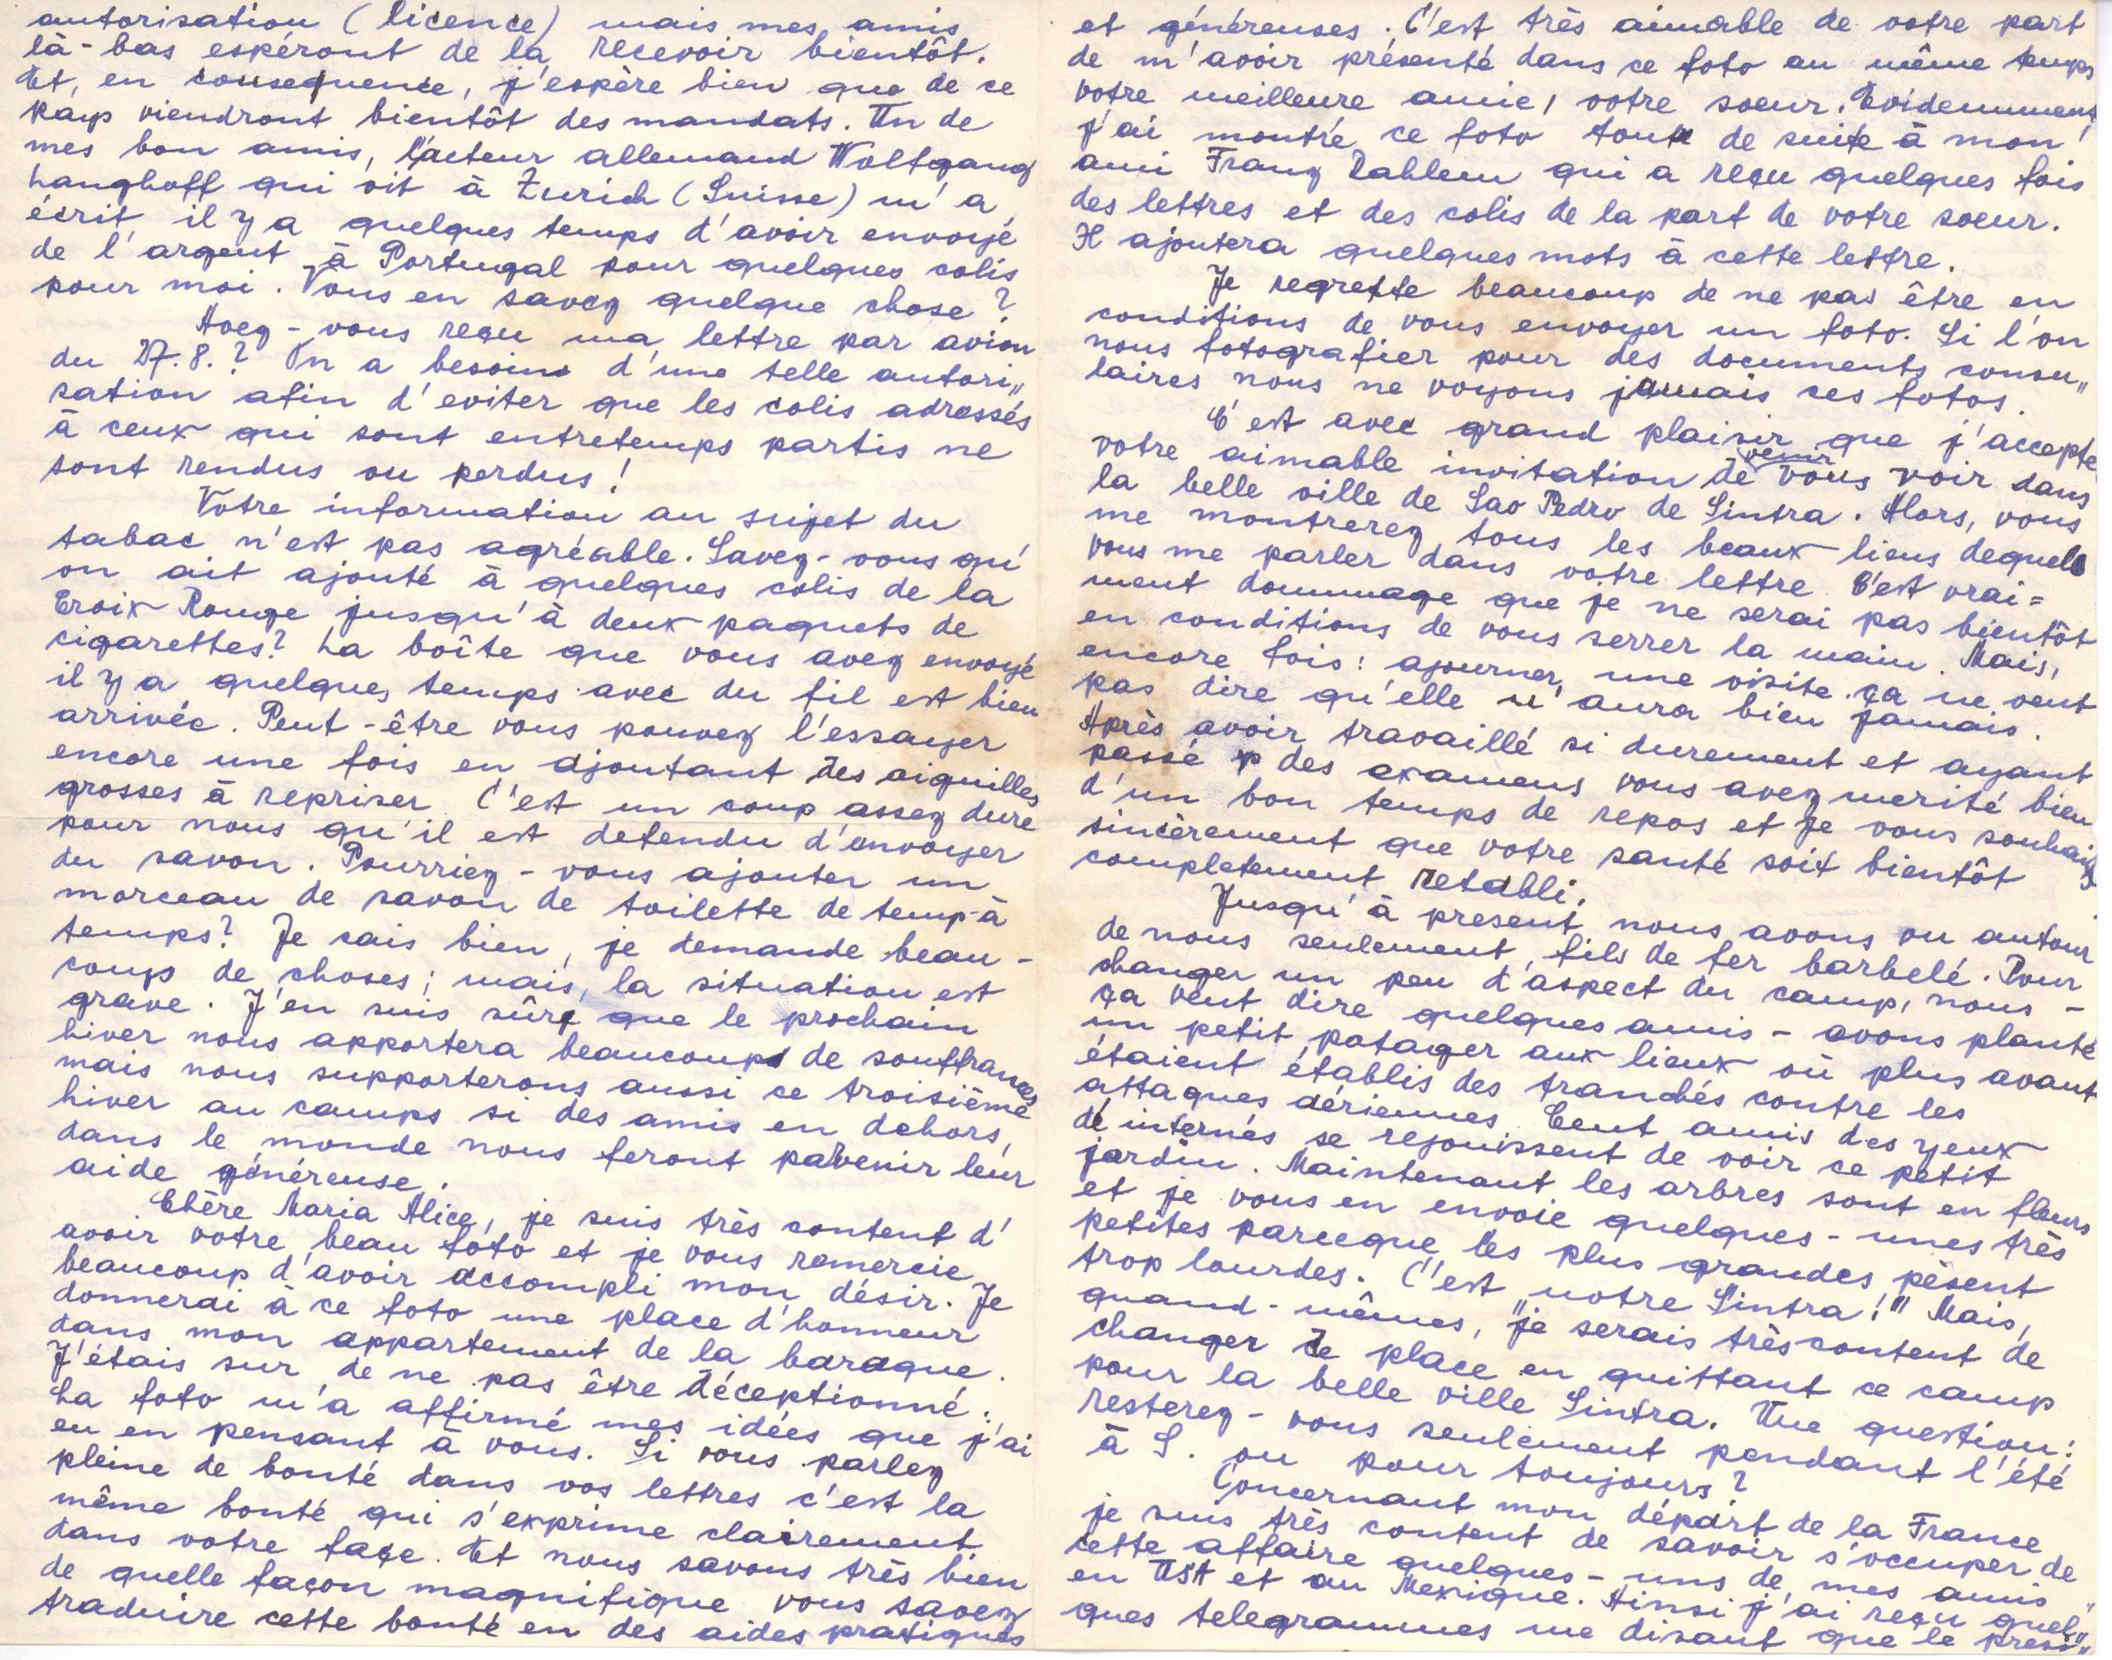 autorisation (licence) mais mes amis
là-bas espéront de la recevoir bientôt.
Et, en consequence, j'espère bien que de ce
pays viendront bientôt des mandats. Un de
mes bon amis, l'acteur allemand Wolfgang
Langhoff qui vit à Zurich (Suisse) m'a
écrit, il y a quelques temps d'avoir envoyé
de l'argent à Portugal pour quelques colis
pour moi. Vous en savez quelque chose?
Avez-vous reçu ma lettre par avion
du 27.8.? On a besoin d'une telle autori„
sation afin d'eviter que les colis adressés
à ceux qui sont entretemps partis ne
sont rendus ou perdus!
Votre information au sujet du
tabac n'est pas agréable. Savez-vous qu'
on ait ajouté à quelques colis de la
Croix Rouge jusqu'à deux paquets de
cigarettes? La boîte que vous avez envoyé
il y a quelques temps avec du fil est bien
arrivée. Peut-être vous pouvez l'essayer
encore une fois en ajoutant des aiguilles
grosses à repriser. C'est un coup assez dure
pour nous qu'il est defendu d'envoyer
du savon. Pourriez-vous ajouter un
morceau de savon de toilette de temp-à
temps? Je sais bien, je demande beau-
coup de choses; mais, la situation est
grave. J'en suis sûre que le prochain
hiver nous apportera beaucoup de souffrances
mais nous supporterons aussi ce troisième
hiver au camps si des amis en dehors,
dans le monde nous feront parvenir leur
aide généreuse.
Chère Maria Alice, je suis très content d'
avoir votre beau foto et je vous remercie
beaucoup d'avoir accompli mon désir. Je
donnerai à ce foto une place d'honneur
dans mon appartement de la baraque.
J'étais sur de ne pas être déceptionné.
La foto m'a affirmé mes idées que j'ai
eu en pensant à vous. Si vous parlez
pleine de bonté dans vos lettres c'est la
même bonté qui s'exprime clairement
dans votre façe. Et nous savons très bien
de quelle façon magnifique vous savez
traduire cette bonté en des aides pratiques
et généreuses. C'est très aimable de votre part
de m'avoir présenté dans ce foto au même temps
votre meilleure amie, votre soeur. Evidemment,
j'ai montré ce foto tout de suite à mon
ami Franz Dahlem qui a reçu quelques fois
des lettres et des colis de la part de votre soeur.
Il ajoutera quelques mots à cette lettre.
Je regrette beaucoup de ne pas être en
conditions de vous envoyer un foto. Si l'on
nous fotografier pour des documents consu„
laires nous ne voyons jamais ces fotos.
C'est avec grand plaisir que j'accepte
votre aimable invitation de venir vous voir dans
la belle ville de Sao Pedro de Sintra. Alors, vous
me montrerez tous les beaux lieus dequels
vous me parler dans votre lettre. C'est vrai=
ment dommage que je ne serai pas bientôt
en conditions de vous serrer la main. Mais,
encore fois: ajourner une visite ça ne veut
pas dire qu'elle n'aura bien jamais.
Après avoir travaillé si durement et ayant
passé des examens vous avez merité bien
d'un bon temps de repos et je vous souhaite
sincèrement que votre santé soit bientôt
completement retabli.
Jusqu'à present nous avons vu autour
de nous seulement fils de fer barbelé. Pour
changer un peu d'aspect du camp, nous -
ça veut dire quelques amis - avons planté
un petit potager aux lieux où plus avant
étaient établis des tranchés contre les
attaques aériennes. Cent amis des yeux
de internés se rejouissent de voir ce petit
jardin. Maintenant les arbres sont en fleurs
et je vous en envoie quelques-unes très
petites parceque les plus grandes pèsent
trop lourdes. C'est „notre Sintra!" Mais,
quand-mêmes, je serais très content de
changer de place en quittant ce camp
pour la belle ville Sintra. Une question:
resterez-vous seulement pendant l'été
à S. ou pour toujours?
Concernant mon départ de la France
je suis très content de savoir s'occuper de
cette affaire quelques-uns de mes amis
en USA et au Mexique. Ainsi j'ai reçu quel„
ques telegrammes me disant que le presi„